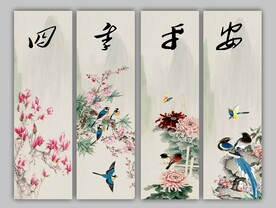 四季平安